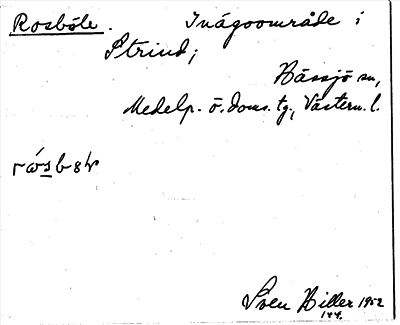 Rosböle. Inägoområde i
Strind;
Hässjö sn,
Medelp. ö. doms. tg., Västern. l.
Sven Hiller 1952